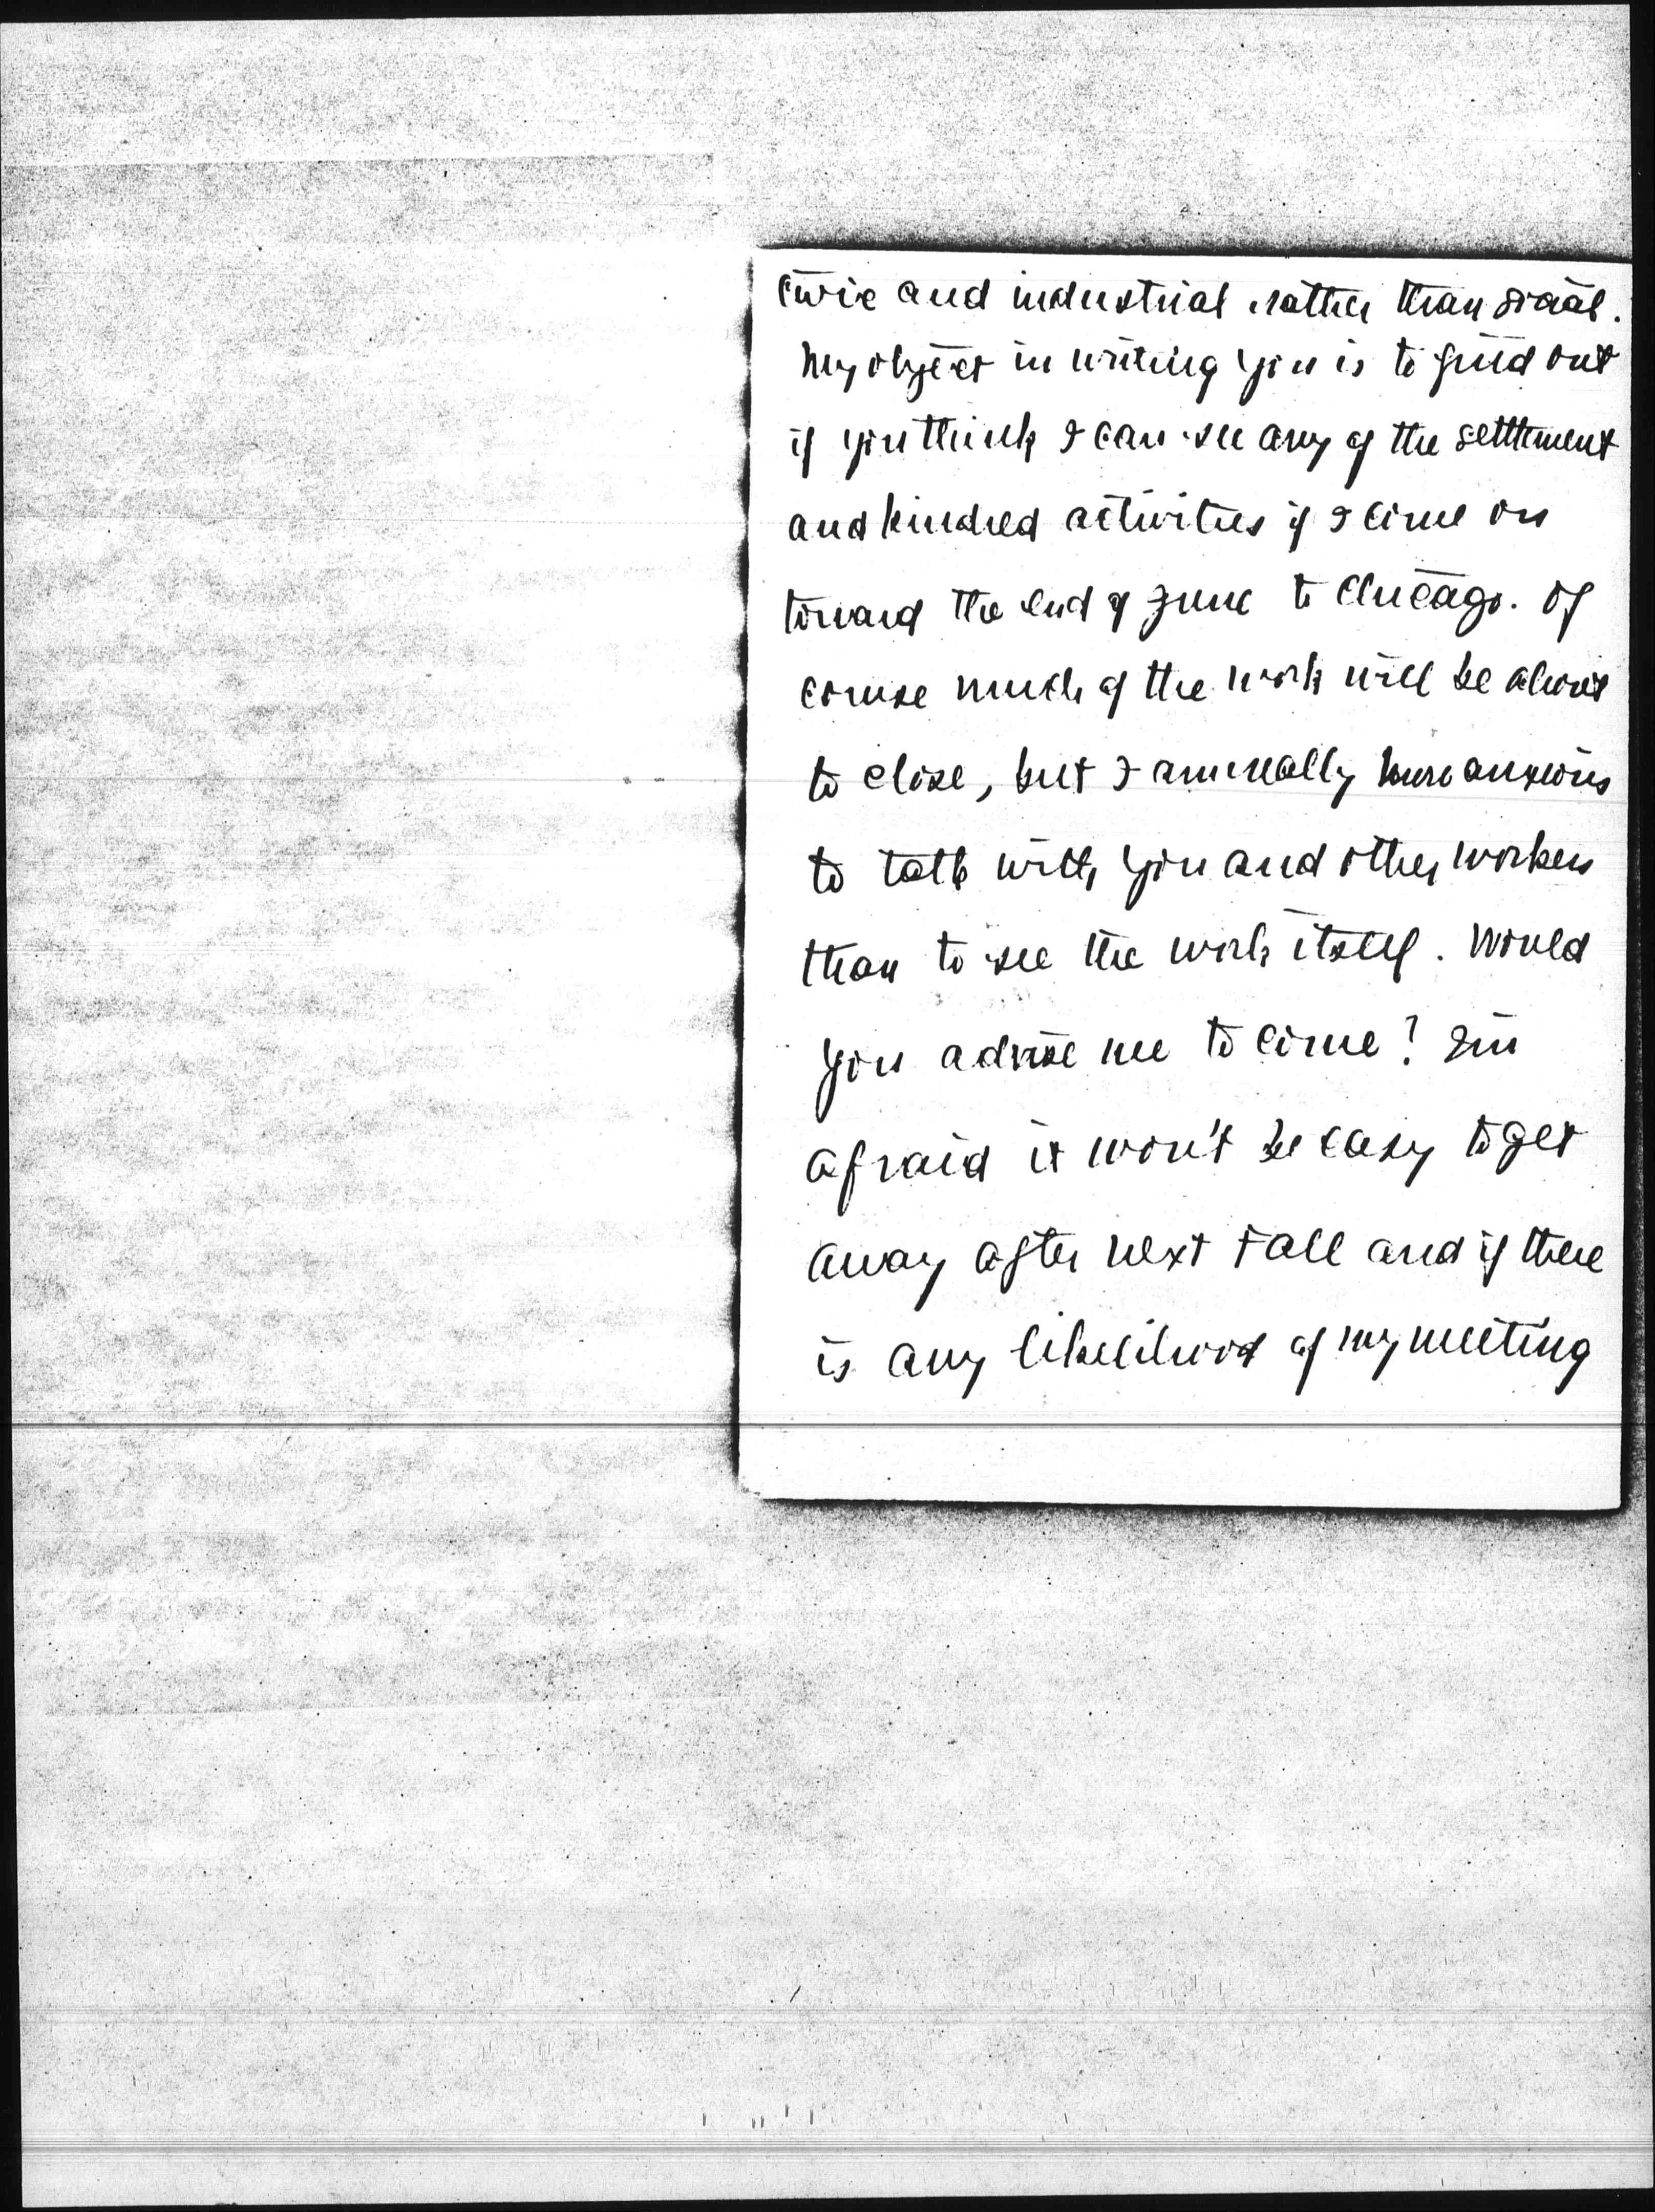 civic and industrial rather than social.
My object in writing you is to find out
if you think I can see any of the settlement
and kindred activities if I come on
toward the end of June to Chicago. Of
course much of the work will be about
to close, but I am really more anxious
to talk with you and other workers
than to see the work itself. Would
you advise me to come? I'm
afraid it won't be easy to get
away after next Fall and if there
is any likelihood of my meeting